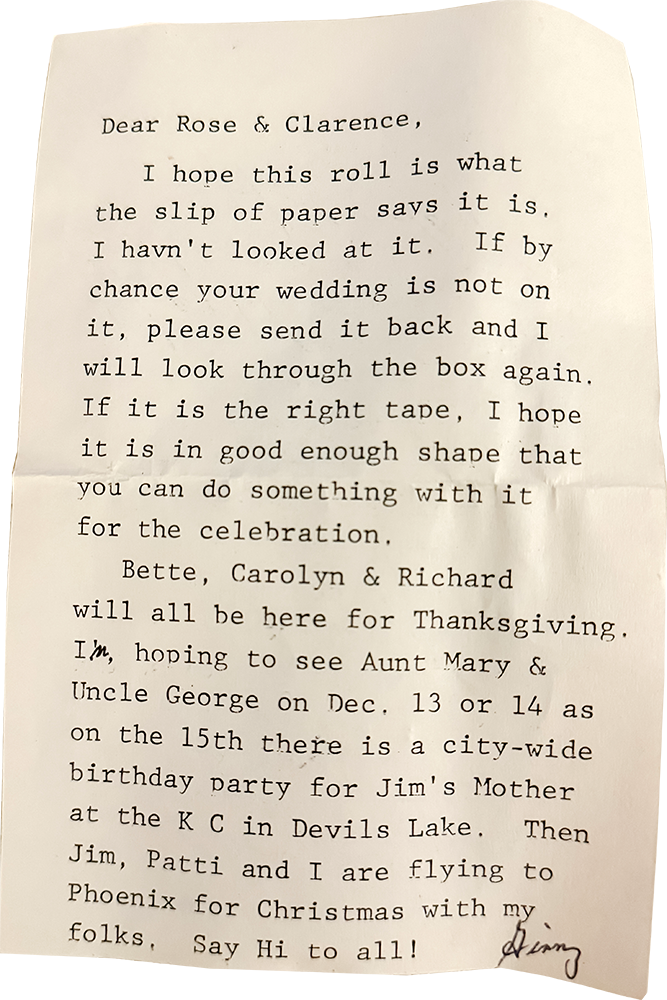 Dear Rose & Clarence,
I hope this roll is what
the slip of paper says it is.
I havn't looked at it. If by
chance your wedding is not on
it, please send it back and I
will look through the box again.
If it is the right tape, I hope
it is in good enough shape that
you can do something with it
for the celebration.
Bette, Carolyn & Richard
will all be here for Thanksgiving.
I'm, hoping to see Aunt Mary &
Uncle George on Dec. 13 or 14 as
on the 15th there is a city-wide
birthday party for Jim's Mother
at the K C in Devils Lake. Then
Jim, Patti and I are flying to
Phoenix for Christmas with my
folks. Say Hi to all! Ginny